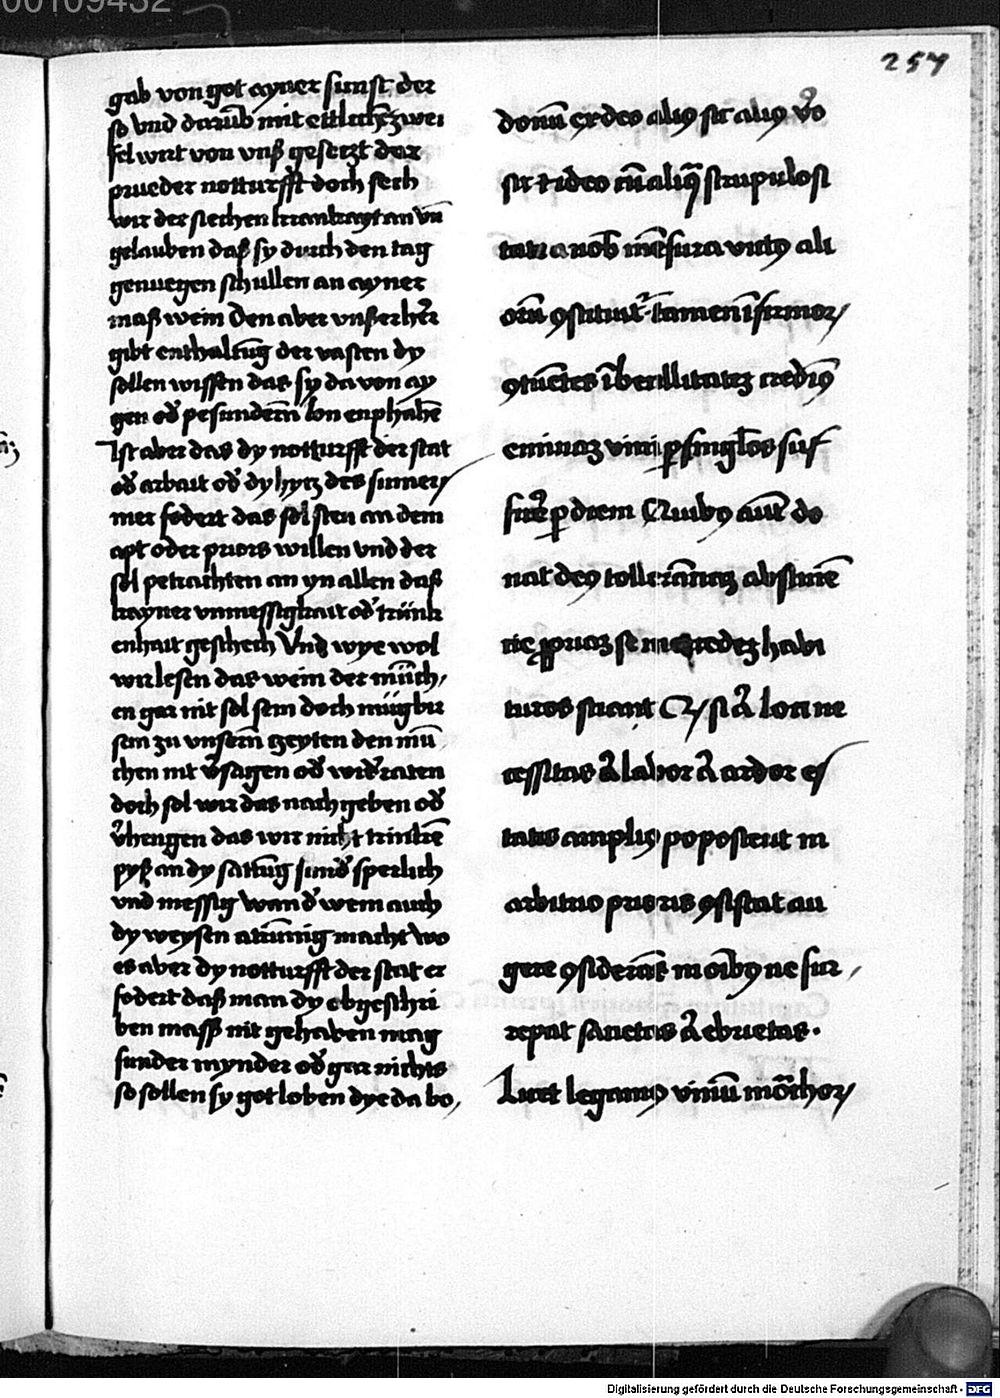 00109432
257
gab von got ayner sunst der
so vnd darūb mit ettlichē zwei
fel wirt von vnß gesetzt der
prueder notturfft doch sech
wir der siechen krankayt an vn̄
gelauben daß sy durch den tag
genuegen schullen an ayner
maß wein Den aber vnßer her̄
gibt enthaltūg der vasten dy
sollen wissen das sy da von ay
gen od' pesundern̄ lon enphahē
Ist aber das dy notturfft der stat
od' arbait od' dy hytz des sumers
mer fodert das sol sten an dem
apt oder priors willen vnd der
sol petrachten an yn allen daß
kayner vnmessigkait od' trunk
enhait geschech Vnd wye wol
wir lesen das wein der mūch,
en gar nit sol sein doch mūg wir
sein zu vnsern̄ tzeyten den mū
chen nit v'sagen od' wid'raten
doch sol wir das nach geben od'
v'hengen das wir nicht trinkē
pyß an dy sattūg sund' sperlich
vnd messig wan d' wein auch
dy weysen abtrūnig macht wo
es aber dy notturfft der stat er
fodert daß man dy obgeschri
ben mass nit gehaben mag
sunder mynder od' gar nichts
so sollen sy got loben dye da bo,
donū ex deo aliꝰ sic aliꝰ v'o
sic ⁊ ideo cū aliq̄ scrupulosi
tate a nob̄ mēsura victꝰ ali
orū ꝯstituit᷑ tamen īfirmoꝝ
ꝯtuētes ībecillitatē credimꝰ
eminaꝫ vini ꝑ singlos suf
ficē ꝑ diem Quibꝰ aut̄ do
nat deꝰ tollerantiā abstinē
tie ꝓpriaꝫ se mercedeꝫ habi
turos sciant Qꝫ si aū loci ne
cessitas aū labor aū ardor es
tatis ampliꝰ poposcerit in
arbitrio prioris ꝯsistat au
gere ꝯsiderās in oībꝰ ne sur
repat sacietas aū ebrietas.
Licet legamꝰ vinū mōchoꝝ
Digitalisierung gefördert durch die Deutsche Forschungsgemeinschaft - DFG